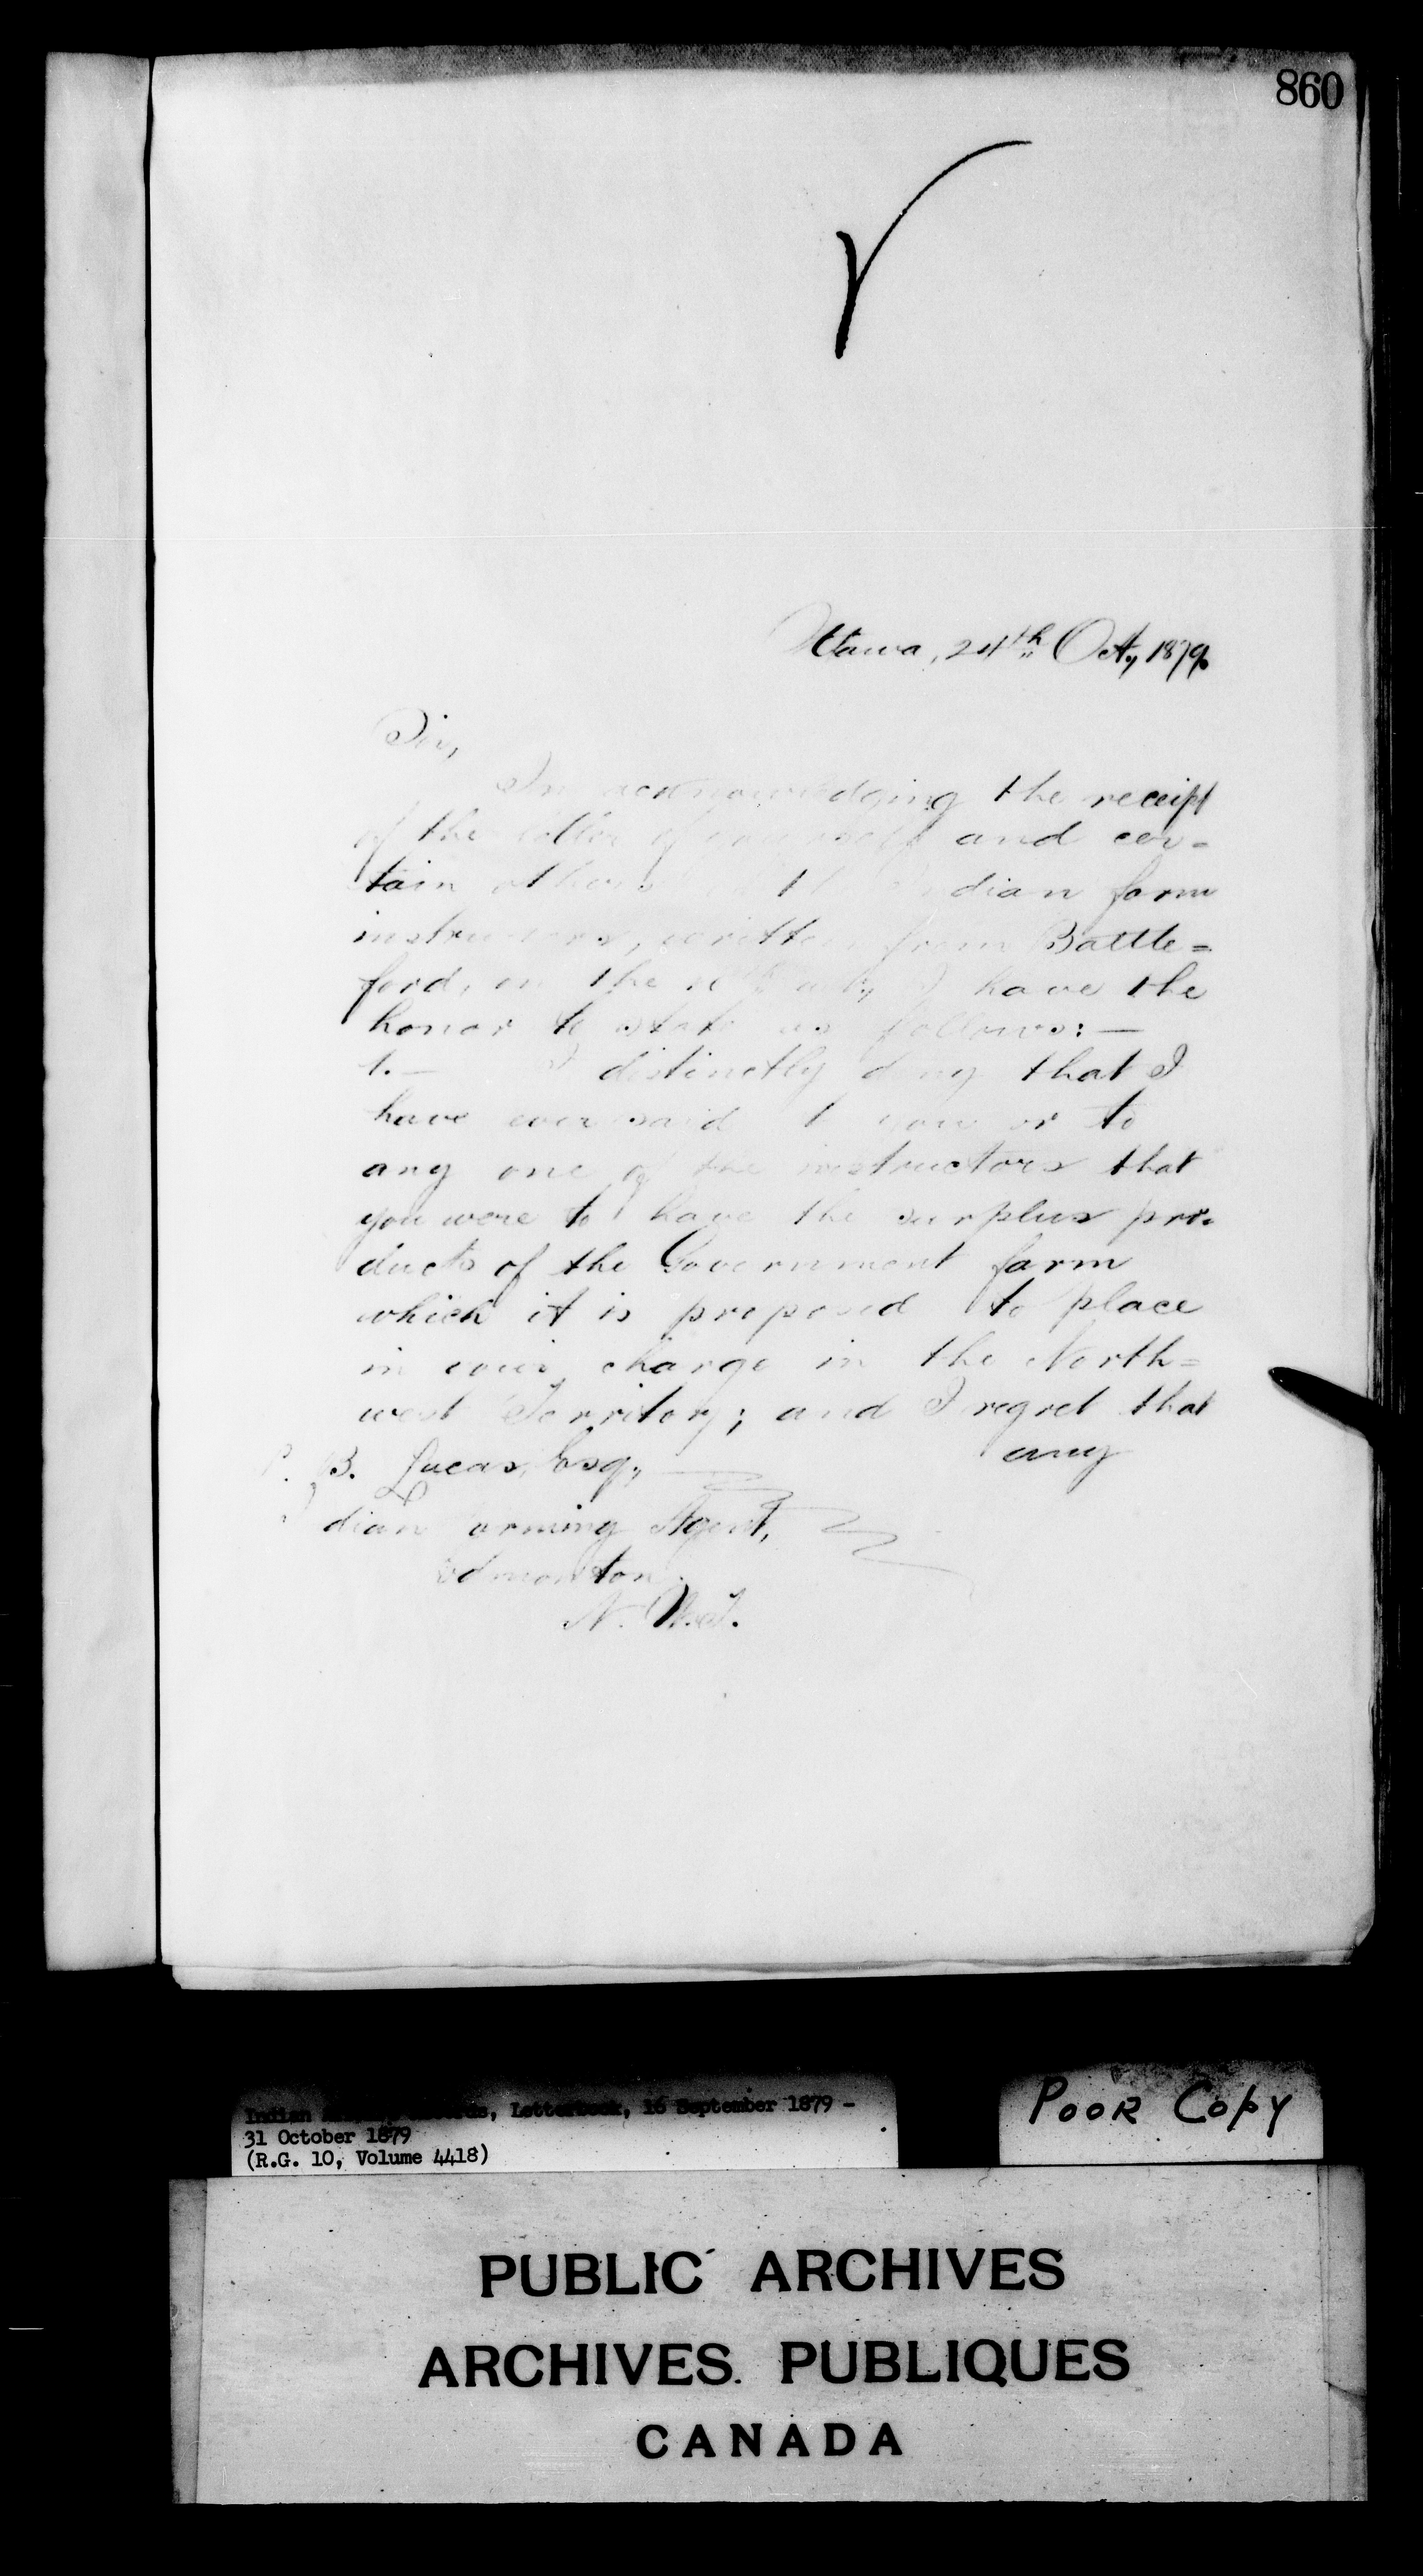 860
Ottawa, 24th Oct., 1879.
Sir,
In acknowledging the receipt
of the letter of yourself and cer=
tain others of the Indian farm
instructors, written from Battle=
ford, on the I have the
honor to state as follows:—
1.— I distinctly deny that I
have ever said to you or to
any one of the instructors that
you were to have the surplus pro-
ducts of the Government farm
which it is proposed to place
in your charge in the North=
west Territory; and I regret that
any
B. Lucas, Esq.,
Indian Farming Agent,
Edmonton
N.W.T.
Indian Records, Letterbook, 16 September 1879 -
31 October 1879
(R.G. 10, Volume 4418)
POOR COPY
PUBLIC ARCHIVES
ARCHIVES PUBLIQUES
CANADA